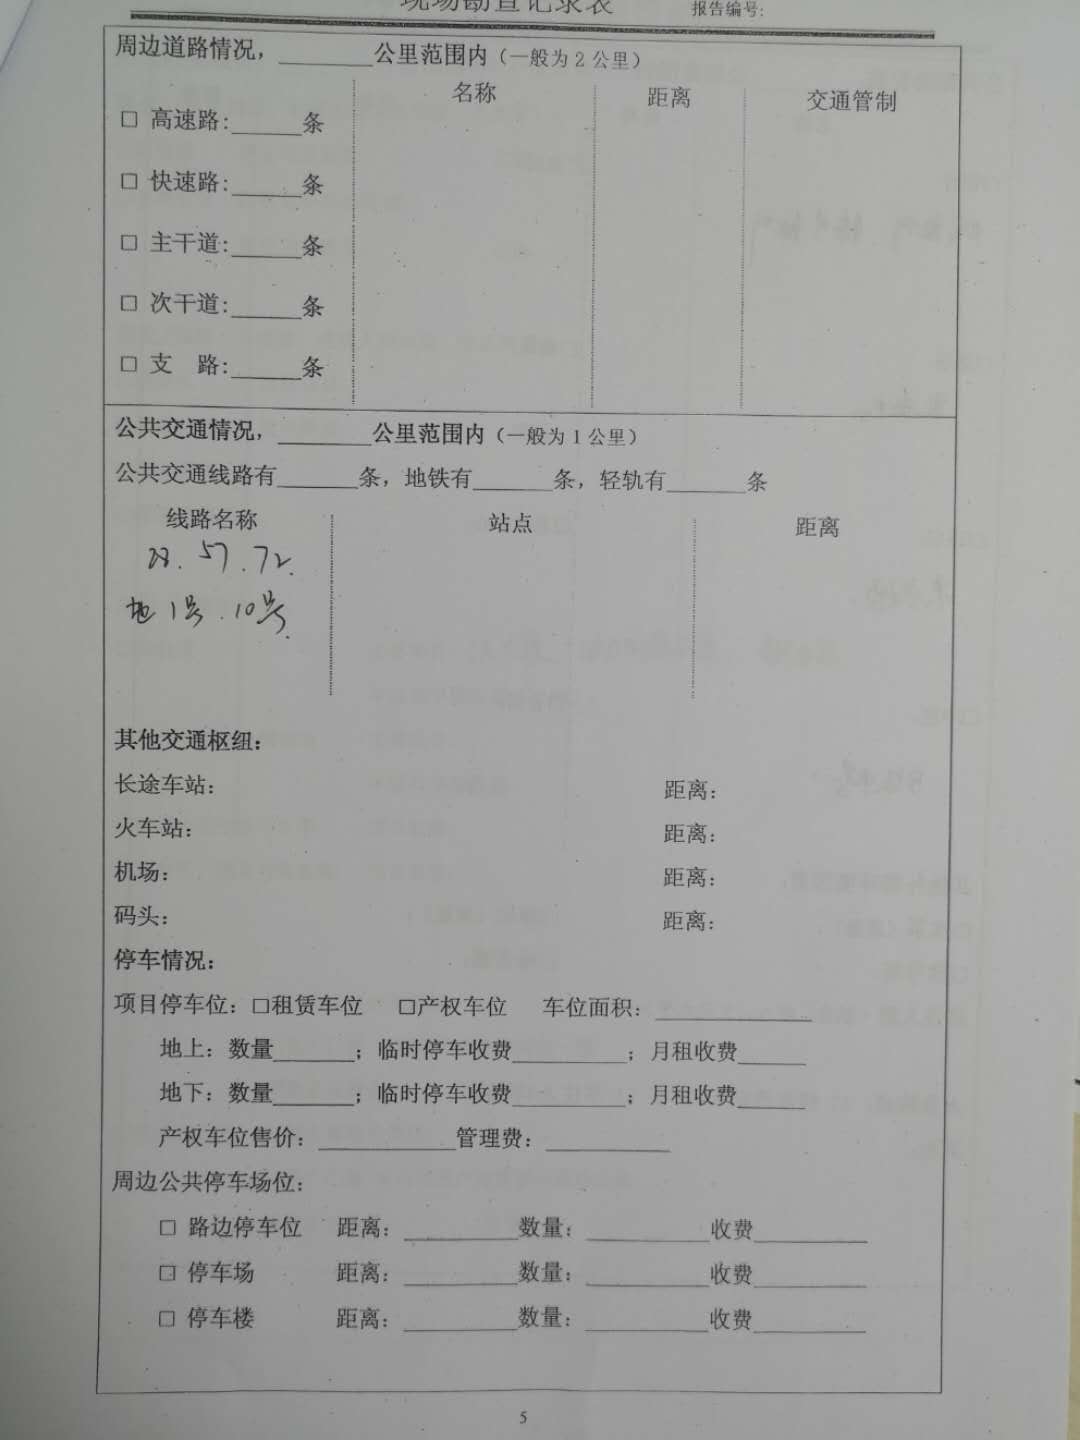 现场勘查记录表 报告编号:
周边道路情况，________公里范围内（一般为 2 公里）
名称 距离 交通管制
□ 高速路:______条
□ 快速路:______条
□ 主干道:______条
□ 次干道:______条
□ 支 路:______条
公共交通情况，________公里范围内（一般为 1 公里）
公共交通线路有_______条，地铁有_______条，轻轨有_______条
线路名称 站点 距离
28. 57. 72.
地 1号. 10号.
其他交通枢纽：
长途车站： 距离：
火车站： 距离：
机场： 距离：
码头： 距离：
停车情况：
项目停车位：□租赁车位 □产权车位 车位面积：______________
地上：数量_______；临时停车收费__________；月租收费______
地下：数量_______；临时停车收费__________；月租收费______
产权车位售价：____________管理费：___________
周边公共停车场位：
□ 路边停车位 距离：__________数量：___________收费__________
□ 停车场 距离：__________数量：___________收费__________
□ 停车楼 距离：__________数量：___________收费__________
5